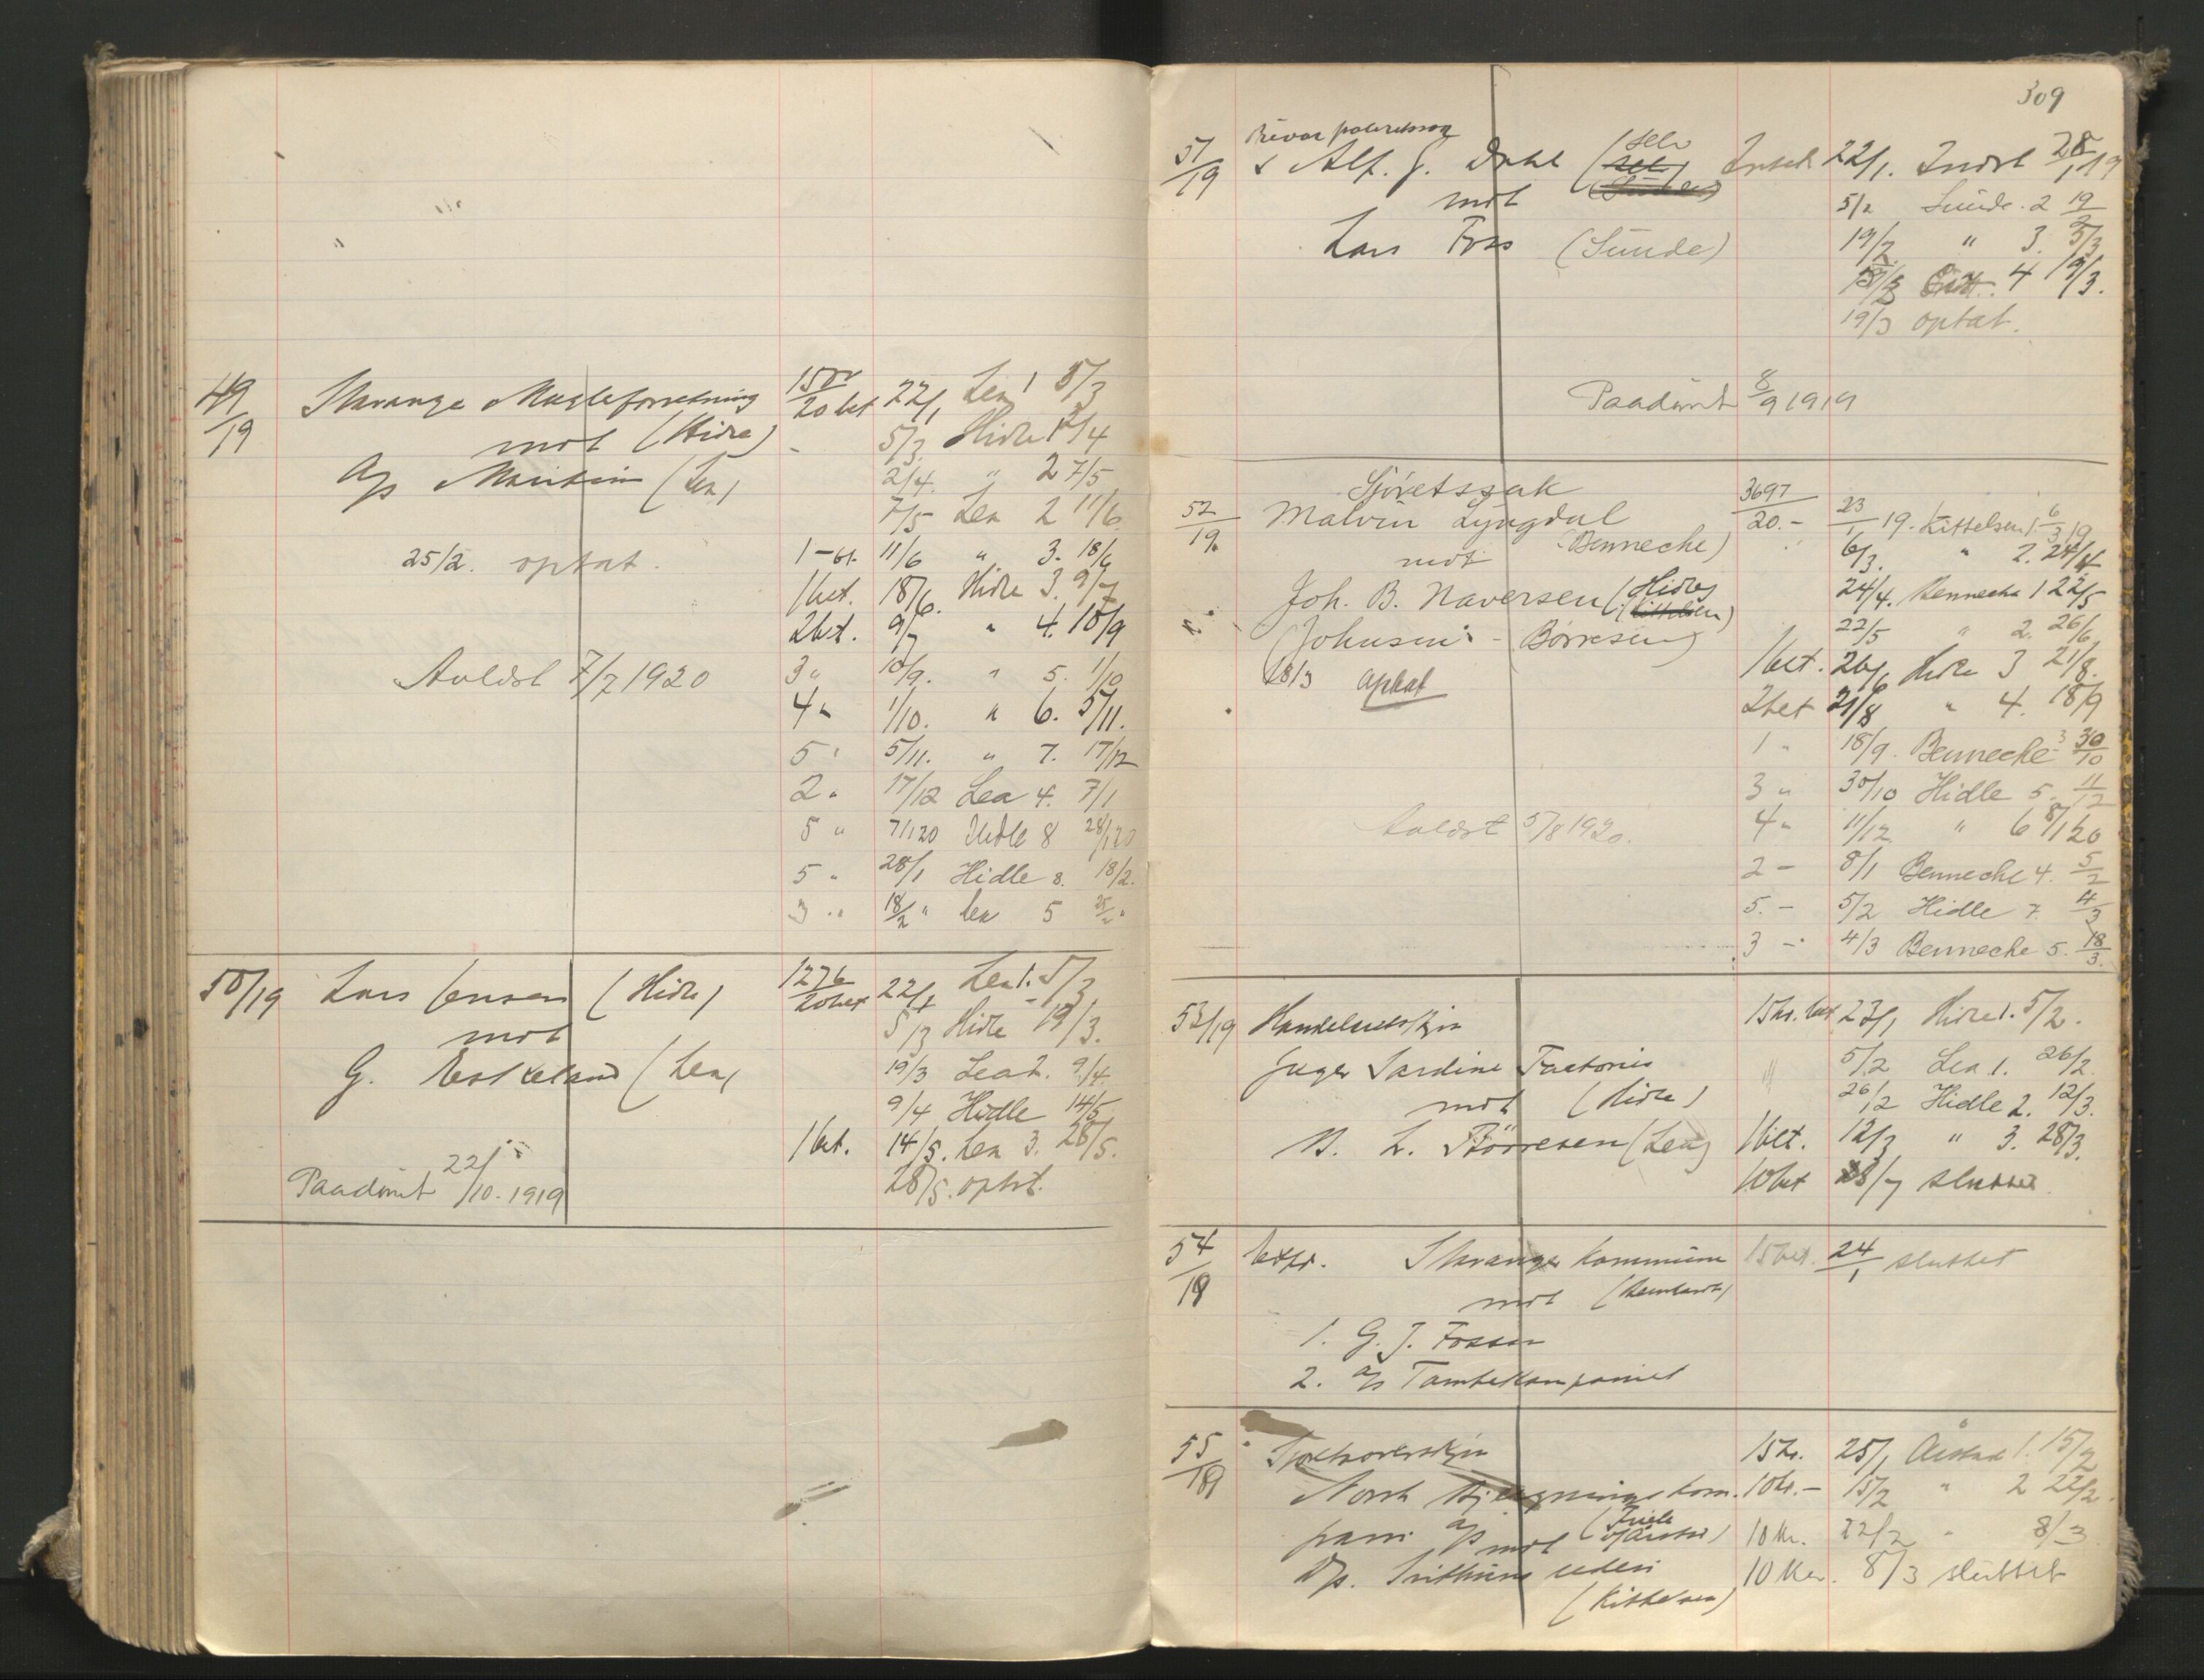 49/19 Stavanger Mægleforretning 15 kr/20 bet 22/1 Lea 1 5/3
mot (Hidle) - 5/3. Hidle 1 2/4
A/s Maritim (Lea) 2/4. " 2 7/5
7/5 Lea 2 11/6.
25/2. optat. 1 - bt. 11/6 " 3. 18/6
1 bet. 18/6. Hidle 3. 9/7
2 bet. 9/7 " 4. 10/9
Avldst 7/7 1920 3 " 10/9. " 5. 1/10
4 " 1/10. " 6. 5/11.
5 " 5/11. " 7. 17/12
2 " 17/12 Lea 4. 7/1
5 " 7/1 20 Hidle 8 28/1 20
5 " 28/1 Hidle 8. 18/2.
3 " 18/2 " Lea 5 25/2 "
50/19 Lars Jensen (Hidle) 1276/20 bet 22/1 Lea 1. 5/3
mot 5/3 Hidle 19/3.
G. Eskeland (Lea) 19/3 Lea 2. 9/4.
9/4 Hidle 14/5
1 bet. 14/5. Lea 3. 28/5.
Paadømt 22/10. 1919 28/5. optat.
309
51/19 Alf. J. Dahl (selv 22/1. Indst 28/1 19
mot 5/2 Sunde. 2 19/2
Lars Foss (Sunde) 19/2 " 3. 5/3
4 19/3.
19/3 optat.
Paadømt 8/9 1919
Sjøretssak 3697
52/19. Malvin Lyngdal 20.- 23/1 19. Kittelsen 1. 6/3 19
mot (Bennecke) 6/3. " 2. 24/4
Joh. B. Naversen (Hidle) 24/4. Bennecke 1 22/5
(Johnsen - Børresen) 22/5 " 2. 26/6
18/3 optat 1 bet. 26/6 Hidle 3 21/8.
2 bet 21/8 " 4. 18/9
1 " 18/9. Bennecke 3 30/10
3 " 30/10 Hidle 5. 11/12
Avldst 5/8 1920. 4 " 11/12. " 6 8/1 20
2 - 8/1 Bennecke 4. 5/2
5. - 5/2 Hidle 7. 4/3
3 - 4/3 Bennecke 5. 18/3.
53/19 15 kr. bet 23/1 Hidle 1. 5/2.
Jæger Sardine Factories 5/2 Lea 1. 26/2.
mot (Hidle) 26/2 Hidle 2. 12/3.
N. L. Børresen (Lea) 1 bet. 12/3 " 3. 28/3.
10 bet 28/7 sluttet
54/19 Expr. Stavanger kommune 15 bet. 24/1 sluttet
mot
1. G. J. Fossan
2. A/s Tambekompaniet
55/19 15 kr. 25/1 Aarstad 1. 15/2
Norsk Bjergningskom- 10 kr. - 15/2 " 2 22/2.
pani A/s mot 10 kr. 22/2 " 8/3
rederi 10 kr. 8/3 sluttet
(Kittelsen)